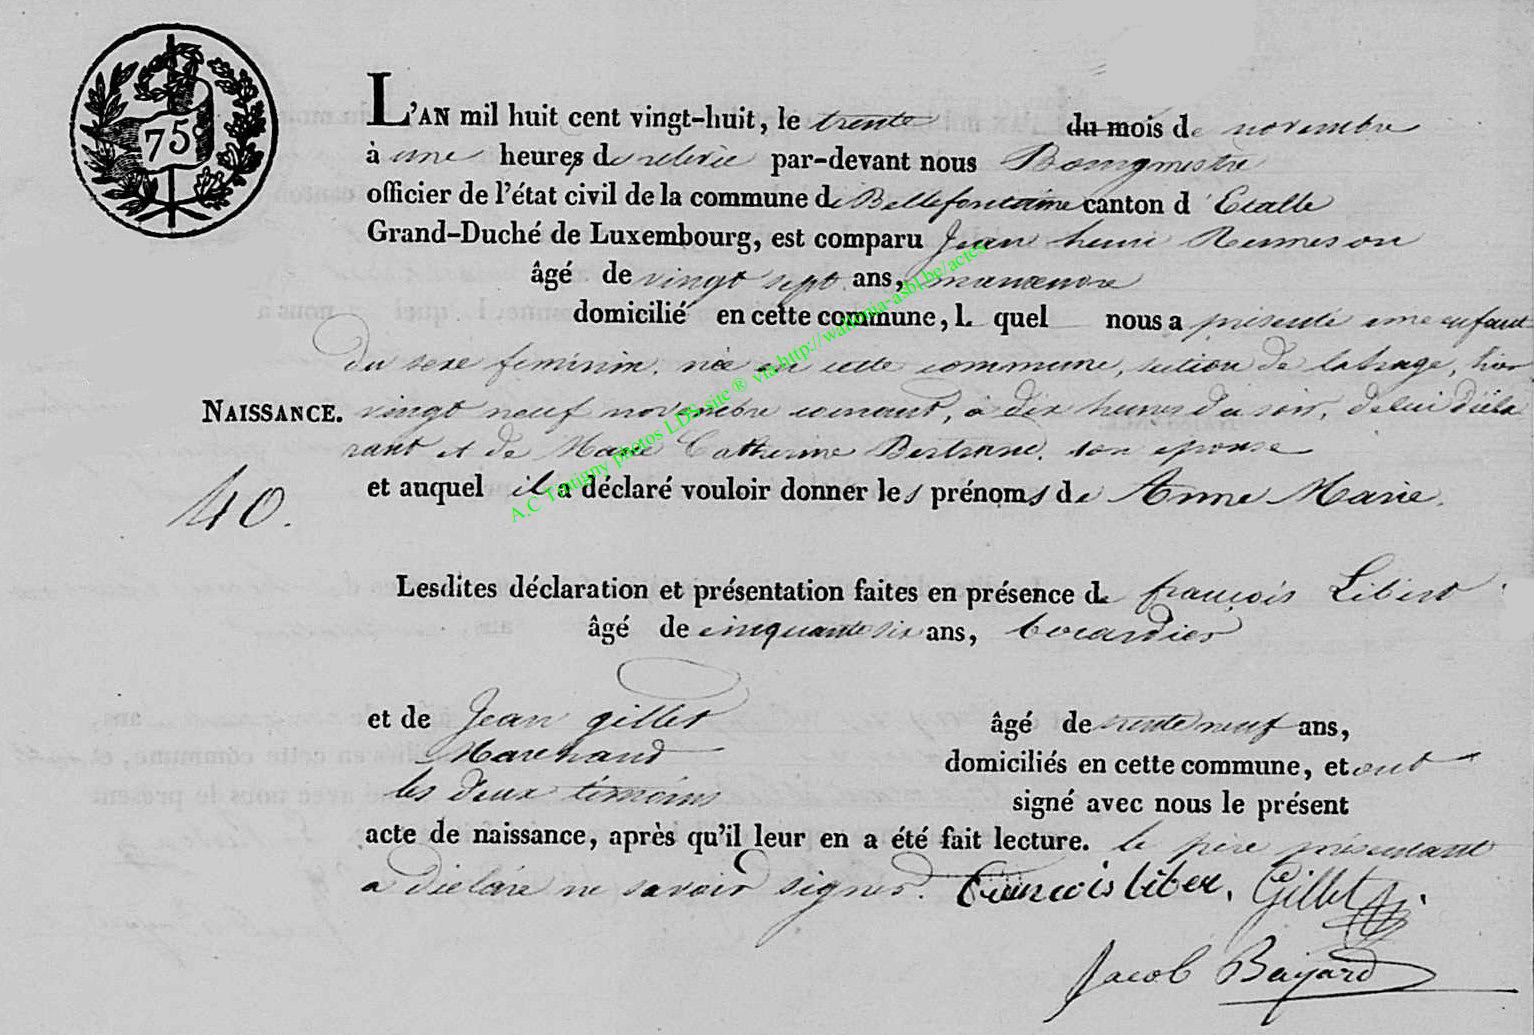 75
L'AN mil huit cent vingt-huit, le trente du mois de novembre
à une heures de relevée par-devant nous Bourgmestre
officier de l'état civil de la commune de Bellefontaine canton d'Etalle
Grand-Duché de Luxembourg, est comparu Jean henri
âgé de vingt sept ans, manœuvre
domicilié en cette commune, l quel nous a présenté une enfant
du sexe féminin, née en cette commune, section de lahage, hier
NAISSANCE. vingt neuf novembre courant, à dix heures du soir, de lui décla
rant et de Marie Catherine Bertrand, son épouse
et auquel il a déclaré vouloir donner les prénoms de Anne Marie.
40.
Lesdites déclaration et présentation faites en présence de françois Libert
âgé de cinquante six ans,
et de Jean gillet âgé de trente neuf ans,
Marchand domiciliés en cette commune, et ont
les deux témoins signé avec nous le présent
acte de naissance, après qu'il leur en a été fait lecture. le père présentant
a déclaré ne savoir signer. François liber. Gillet
Jacob Bayard
A.C Tintigny photos LDS site ® via http://wallonia-asbl.be/actes